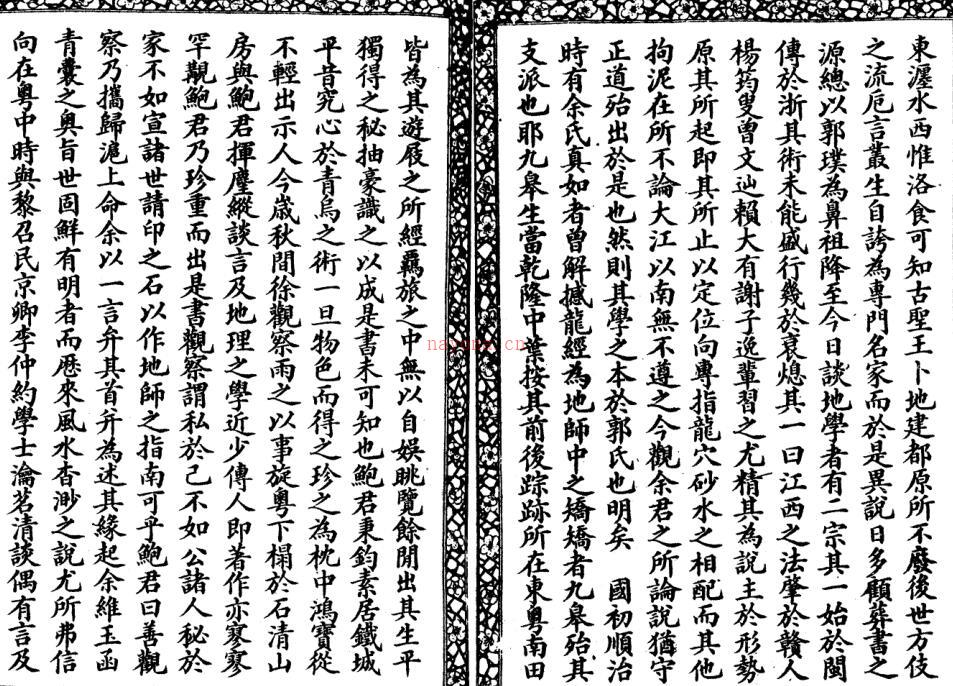 東瀍水西惟洛食可知古聖王卜地建都原所不廢後世方伎
之流卮言叢生自誇為專門名家而於是異說日多顧葬書之
源總以郭璞為鼻祖降至今日談地學者有二宗其一始於閩
傳於浙其術未能盛行幾於衰熄其一曰江西之法肇於贛人
楊筠叟曾文辿賴大有謝子逸輩習之尤精其為說主於形勢
原其所起即其所止以定位向專指龍穴砂水之相配而其他
拘泥在所不論大江以南無不遵之今觀余君之所論說猶守
正道殆出於是也然則其學之本於郭氏也明矣 國初順治
時有余氏真如者曾解撼龍經為地師中之矯矯者九皋殆其
支派也耶九皋生當乾隆中葉按其前後踪跡所在東粵南田
皆為其遊屐之所經羈旅之中無以自娛眺覽餘閒出其生平
獨得之秘抽豪識之以成是書未可知也鮑君秉鈞素居鐵城
平昔究心於青烏之術一旦物色而得之珍之為枕中鴻寶從
不輕出示人今歲秋間徐觀察雨之以事旋粵下榻於石清山
房與鮑君揮麈縱談言及地理之學近少傳人即著作亦寥寥
罕覯鮑君乃珍重而出是書觀察謂私於己不如公諸人秘於
家不如宣諸世請印之石以作地師之指南可乎鮑君曰善觀
察乃攜歸滬上命余以一言弁其首并為述其緣起余維玉函
青囊之奧旨世固鮮有明者而歷來風水杳渺之說尤所弗信
向在粵中時與黎召民京卿李仲約學士瀹茗清談偶有言及